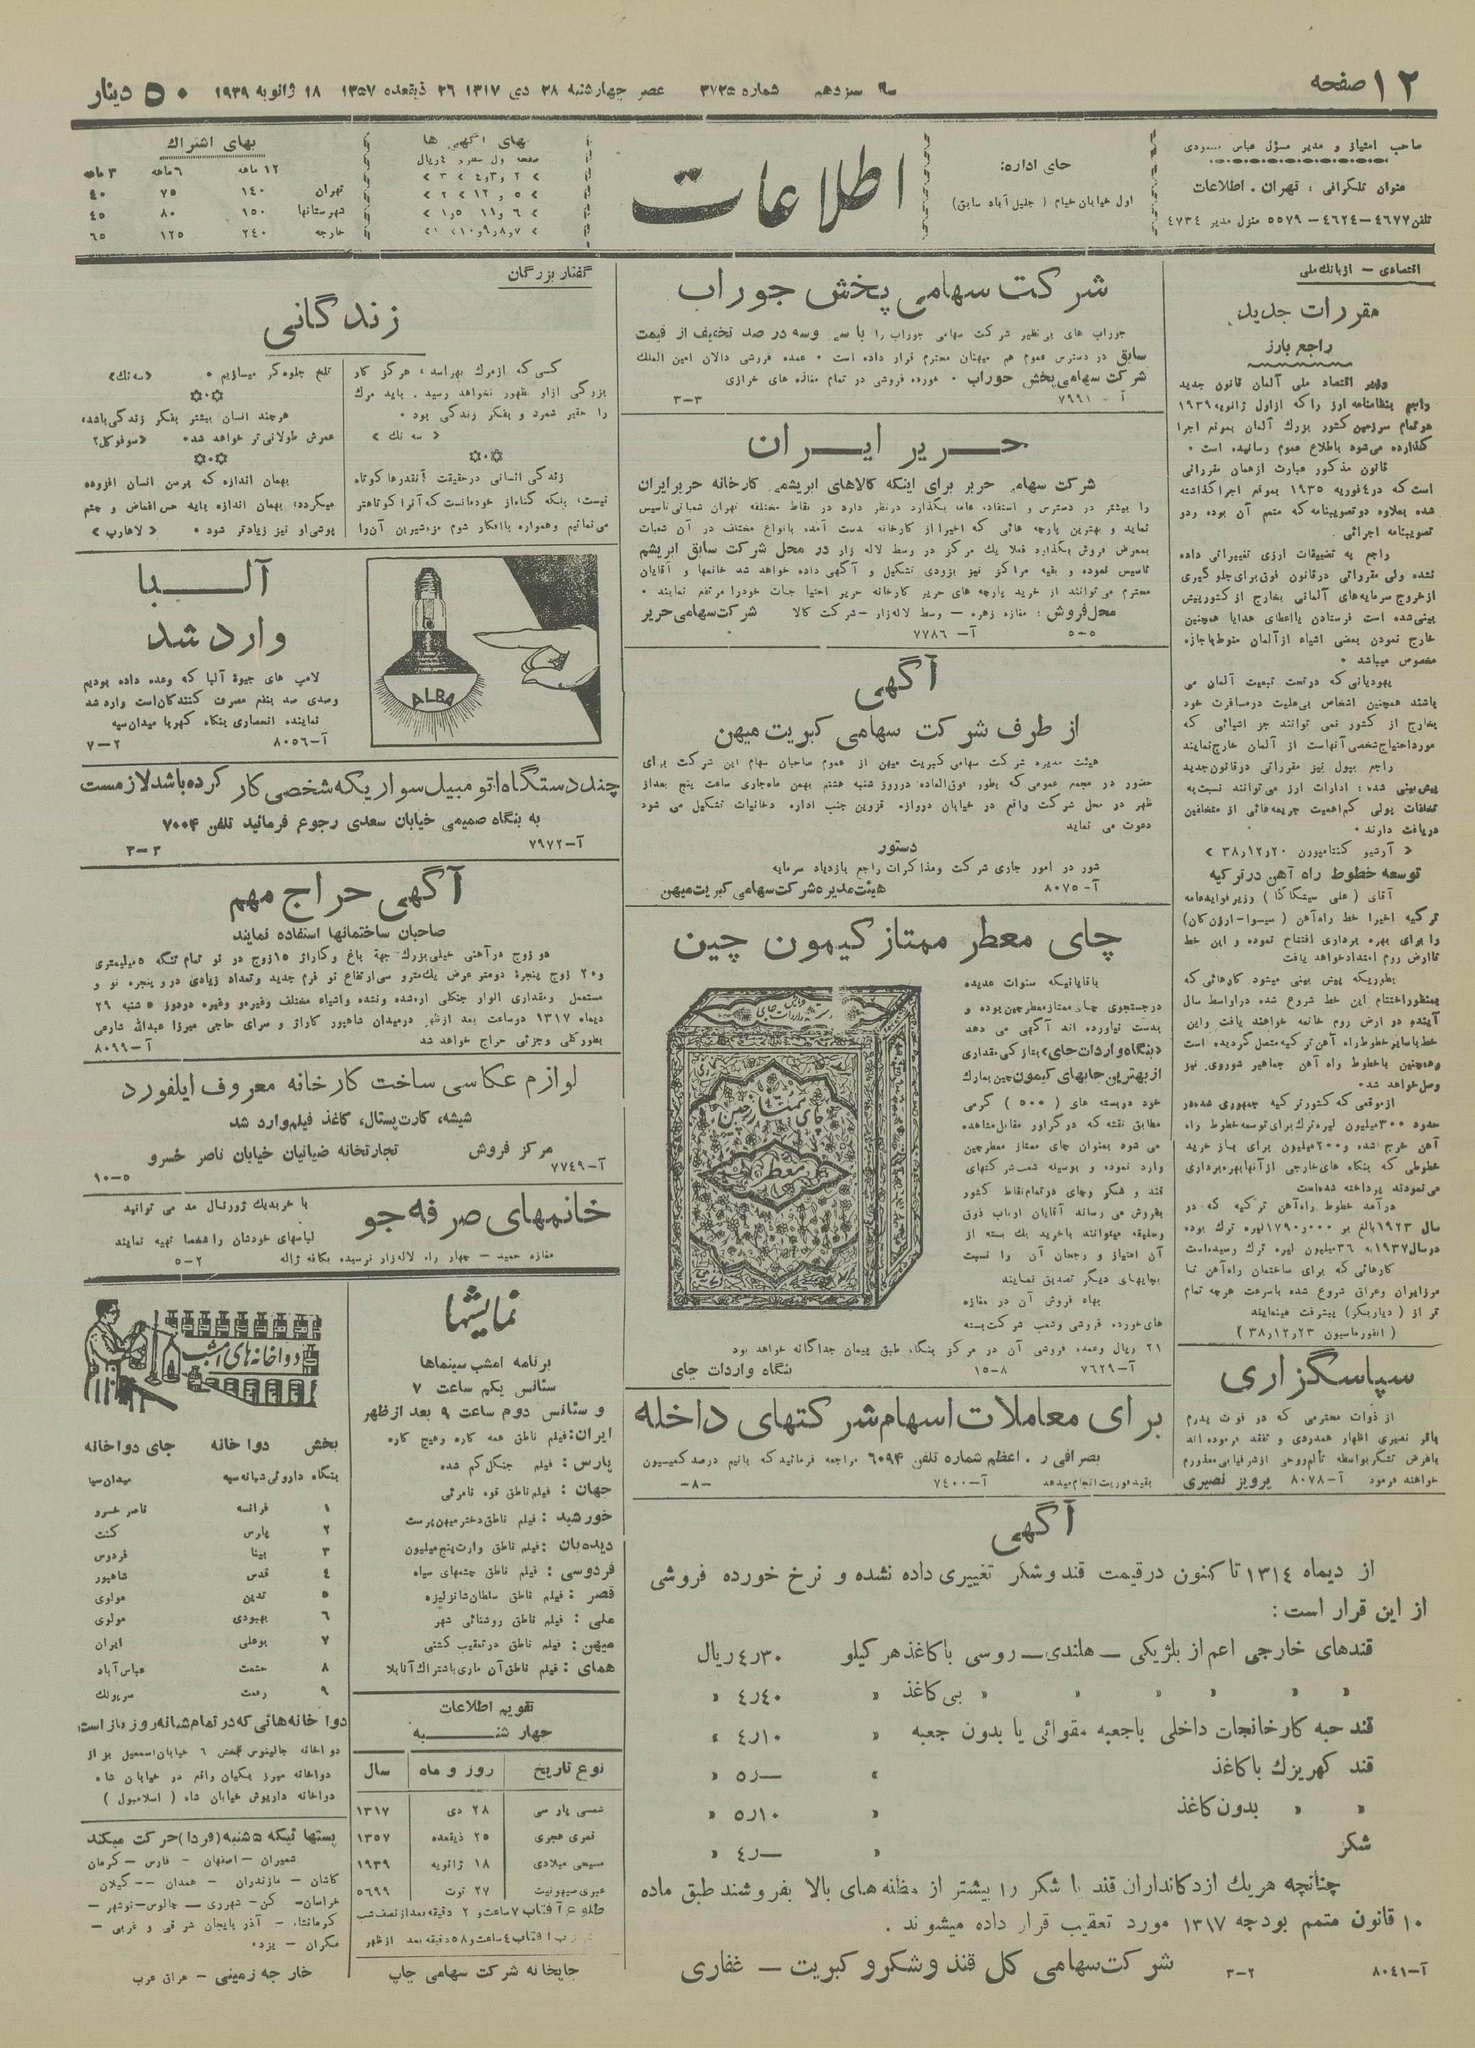 ۱۲ صفحه
سال سیزدهم شماره ۳۷۲۵ عصر چهارشنبه ۲۸ دی ۱۳۱۷ ۲۶ ذیقعده ۱۳۵۷ ۱۸ ژانویه ۱۹۳۹
۵۰ دینار
صاحب امتیاز و مدیر مسؤل عباس مسعودی
عنوان تلگرافی : تهران . اطلاعات
تلفن ۴۶۷۷-۴۶۲۴- ۵۵۷۹ منزل مدیر ۴۷۳۴
جای اداره:
اول خیابان خیام ( جلیل آباد سابق)
اطلاعات
بهای آگهی ها
بهای اشتراک
۱۲ ماهه ۶ماهه ۳ ماهه
تهران ۱۴۰ ۷۵ ۴۰
شهرستانها ۱۵۰ ۸۰ ۴۵
خارجه ۲۴۰ ۱۲۵ ۶۵
اقتصادی - از بانک ملی
مقررات جدید
راجع بارز
وزیر اقتصاد ملی آلمان قانون جدید
راجع بنظامنامه ارز را که از اول ژانویه ۱۹۳۹
در تمام سرزمین کشور بزرگ آلمان بموقع اجرا
گذارده می‌شود باطلاع عموم رسانیده است .
قانون مذکور عبارت از همان مقرراتی
است که در ۴ فوریه ۱۹۳۵ بموقع اجرا گذاشته
شده بعلاوه دو تصویبنامه که متمم آن بوده ردو
تصویبنامه اجرائی .
راجع به تضییقات ارزی تغییراتی داده
نشده ولی مقرراتی در قانون فوق برای جلوگیری
از خروج سرمایه‌های آلمانی بخارج از کشور پیش
بینی شده است فرستادن یا اعطای هدایا همچنین
خارج نمودن بعضی اشیاء از آلمان منوط باجازه
مخصوص میباشد .
یهودیانی که در تحت تبعیت آلمان می
باشند همچنین اشخاص بی‌علیت در مسافرت خود
بخارج از کشور نمی توانند جز اشیائی که
مورد احتیاج شخصی آنهاست از آلمان خارج نمایند
راجع بپول نیز مقرراتی در قانون جدید
پیش بینی شده : ادارات ارز می‌توانند نسبت به
تخلفات پولی کم اهمیت جریمه هائی از متخلفین
دریافت دارند .
توسعه خطوط راه آهن در ترکیه
ترکیه اخیرا خط راه آهن ( سیسوا-ارزن کان)
را برای بهره برداری افتتاح نموده و این خط
تا ارض روم امتداد خواهد یافت
بطوریکه پیش بینی میشود کارهائی که
بمنظور اختتام این خط شروع شده در اواسط سال
آینده در ارض روم خاتمه خواهند یافت و این
خط با سایر خطوط راه آهن ترکیه متصل گردیده است
وهمچنین با خطوط راه آهن جماهیر شوروی نیز
وصل خواهد شد .
از موقعی که کشور ترکیه جمهوری شده در
حدود ۳۰۰ میلیون لیره ترک برای توسعه خطوط راه
آهن خرج شده و ۲۰۰ میلیون برای باز خرید
خطوطی که بنگاه های خارجی از آنها بهره برداری
می نمودند پرداخته شده است
درآمد خطوط راه آهن ترکیه که در
سال ۱۹۲۳ بالغ بر ۱۷۹۰٫۰۰۰ لیره ترک بوده
در سال ۱۹۳۷ به ۳۶ میلیون لیره ترک رسیده است
کارهائی که برای ساختمان راه آهن تا
مرز ایران وعراق شروع شده با سرعت هرچه تمام
تر از ( دیاربکر) پیشرفت مینمایند
( انفورماسیون ۳۸٫۱۲٫۲۳ )
سپاسگزاری
از ذوات محترمی که در فوت پدرم
باقر نصیری اظهار همدردی و تفقد فرموده اند
بافرض تشکر بواسطه تألم روحی از شرفیابی معذورم
خواهند فرمود آ-۸۰۷۸ پرویز نصیری
شرکت سهامی پخش جوراب
جوراب های بی نظیر شرکت سهامی جوراب را با سی وسه در صد تخفیف از قیمت
سابق در دسترس عموم هم میهنان محترم قرار داده است . عمده فروشی دالان امین الملک
شرکت سهامی پخش جوراب . خورده فروشی در تمام مغازه های خرازی
آ - ۷۹۹۱ ۳-۳
حریر ایران
شرکت سهامی حریر برای اینکه کالاهای ابریشمی کارخانه حریر ایران
را بیشتر در دسترس و استفاده عامه بگذارد در نظر دارد در نقاط مختلفه تهران شعباتی تاسیس
نماید و بهترین پارچه هائی که اخیرا از کارخانه بدست آمده بانواع مختلف در آن شعبات
بمعرض فروش بگذارد فعلا یک مرکز در وسط لاله زار در محل شرکت سابق ابریشم
تاسیس نموده و بقیه مراکز نیز بزودی تشکیل و آگهی داده خواهد شد خانمها و آقایان
محترم می توانند از خرید پارچه های حریر کارخانه حریر احتیاجات خود را مرتفع نمایند .
محل فروش : مغازه زهره - وسط لاله زار - شرکت کالا شرکت سهامی حریر
آ- ۷۷۸۶ ۵-۵
آگهی
از طرف شرکت سهامی کبریت میهن
هیئت مدیره شرکت سهامی کبریت میهن از عموم صاحبان سهام این شرکت برای
حضور در مجمع عمومی که بطور فوق العاده در روز شنبه هشتم بهمن ماه جاری ساعت پنج بعد از
ظهر در محل شرکت واقع در خیابان دروازه قزوین جنب اداره دخانیات تشکیل می شود
دعوت می نماید
دستور
شور در امور جاری شرکت ومذاکرات راجع بازدیاد سرمایه
آ- ۸۰۷۵ هیئت مدیره شرکت سهامی کبریت میهن
چای معطر ممتاز کیمون چین
با قایانیکه سنوات عدیده
در جستجوی چای ممتاز معطر چین بوده و
بدست نیاورده اند آگهی می دهد
«بنگاه واردات چای» بتازگی مقداری
از بهترین چایهای کیمون چین بمارک
خود در بسته های (۵۰۰) گرمی
مطابق نقشه که در گراور مقابل مشاهده
می شود بعنوان چای ممتاز معطر چین
وارد نموده و بوسیله شعب شرکتهای
قند و شکر وچای در تمام نقاط کشور
بفروش می رساند آقایان ارباب ذوق
وسلیقه میتوانند با خرید یک بسته از
آن امتیاز و رجحان آن را نسبت
بچایهای دیگر تصدیق نمایند
بهاء فروش آن در مغازه
های خورده فروشی وشعب شرکت بسته
۲۱ ریال وعمده فروشی آن در مرکز بنگاه طبق پیمان جداگانه خواهد بود
آ-۷۶۲۹ ۸-۱۵ بنگاه واردات چای
چای ممتاز چین
معطر
برای معاملات اسهام شرکتهای داخله
بصرافی ر . اعظم شماره تلفن ۶۰۹۴ مراجعه فرمائید که بانیم درصد کمیسیون
بقید فوریت انجام میدهد آ-۷۴۰۰ -۸-
آگهی
از دیماه ۱۳۱۴ تا کنون در قیمت قند و شکر تغییری داده نشده و نرخ خورده فروشی
از این قرار است :
قندهای خارجی اعم از بلژیکی - هلندی - روسی با کاغذ هر کیلو ۴٫۳۰ ریال
» » » » » بی کاغذ » ۴٫۴۰ »
قند حبه کارخانجات داخلی با جعبه مقوائی یا بدون جعبه » ۴٫۱۰ »
قند کهریزک با کاغذ » ۵٫- »
» » بدون کاغذ » ۵٫۱۰ »
شکر » ۴٫- »
چنانچه هریک از دکانداران قند یا شکر را بیشتر از مظنه های بالا بفروشند طبق ماده
۱۰ قانون متمم بودجه ۱۳۱۷ مورد تعقیب قرار داده میشوند .
آ-۸۰۴۱ ۲-۳ شرکت سهامی کل قند و شکر و کبریت - غفاری
گفتار بزرگان
زندگانی
کسی که از مرگ بهراسد ، هرگز کار
بزرگی از او بظهور نخواهد رسید . باید مرگ
را حقیر شمرد و بفکر زندگی بود .
« سه نک »
زندگی انسانی در حقیقت آنقدرها کوتاه
نیست ، بلکه گناه از خود ماست که آنرا کوتاهتر
می نمائیم وهمواره با افکار شوم مزه شیرین آن را
تلخ جلوه گر میسازیم . «سه نک»
هرچند انسان بیشتر بفکر زندگی باشد ،
عمرش طولانی تر خواهد شد . «سوفوکل»
بهمان اندازه که برسن انسان افزوده
میگردد ، بهمان اندازه باید حس اغماض و چشم
پوشی او نیز زیادتر شود . « لاهارپ »
آلبا
وارد شد
لامپ های جیوهٔ آلبا که وعده داده بودیم
وصدی صد بنفع مصرف کنندگان است وارد شد
نماینده انحصاری بنگاه کهربا میدان سپه
آ-۸۰۵۶ ۲-۷
ALBA
چند دستگاه اتومبیل سواریکه شخصی کار کرده باشد لازمست
به بنگاه صمیمی خیابان سعدی رجوع فرمائید تلفن ۷۰۰۴
آ-۷۹۷۲ ۳-۳
آگهی حراج مهم
صاحبان ساختمانها استفاده نمایند
دو زوج در آهنی خیلی بزرگ جهة باغ وگاراژ ۱۵ زوج در نو تمام تنگه ۵ میلیمتری
و ۲۰ زوج پنجره دومتر عرض یکمترو سی ارتفاع نو فرم جدید وتعداد زیادی درو پنجره نو و
مستعمل ومقداری الوار جنگلی اره شده ونشده واشیاء مختلف وغیره و وغیره در روز ۵ شنبه ۲۹
دیماه ۱۳۱۷ دو ساعت بعد از ظهر در میدان شاهپور گاراژ و سرای حاجی میرزا عبدالله شارعی
بطور کلی وجزئی حراج خواهد شد آ-۸۰۹۹
لوازم عکاسی ساخت کارخانه معروف ایلفورد
شیشه ، کارت پستال ، کاغذ فیلم وارد شد
مرکز فروش تجارتخانه ضیائیان خیابان ناصر خسرو
آ-۷۷۴۹ ۵-۱۰
خانمهای صرفه جو
با خرید یک ژورنال مد می توانید
لباسهای خودتان را شخصا تهیه نمایند
مغازه حمید - چهار راه لاله زار نرسیده بکافه ژاله ۲-۵
نمایشها
برنامه امشب سینماها
سئانس یکم ساعت ۷
و سئانس دوم ساعت ۹ بعد از ظهر
ایران: فیلم ناطق همه کاره وهیچ کاره
پارس : فیلم جنگل گم شده
جهان : فیلم ناطق قوه نامرئی
خورشید : فیلم ناطق دختر میهن پرست
دیده بان : فیلم ناطق وارث پنج میلیون
فردوسی : فیلم ناطق چشمهای سیاه
قصر : فیلم ناطق سلطان شانزلیزه
ملی : فیلم ناطق روشنائی شهر
میهن : فیلم ناطق در تعقیب کشتی
همای : فیلم ناطق آن ماری باشتراک آنابلا
تقویم اطلاعات
چهارشنبه
نوع تاریخ روز و ماه سال
شمسی پارسی ۲۸ دی ۱۳۱۷
قمری هجری ۲۵ ذیقعده ۱۳۵۷
مسیحی میلادی ۱۸ ژانویه ۱۹۳۹
۲۷ ۵۶۹۹
طلوع آفتاب ۷ ساعت و ۲ دقیقه بعد از نصف شب
غروب آفتاب ۴ ساعت و ۵۸ دقیقه بعد از ظهر
چاپخانه شرکت سهامی چاپ
دواخانه های امشب
بخش دواخانه جای دواخانه
بنگاه داروئی شبانه سپه میدان سپه
۱ فرانسه ناصر خسرو
۲ پارس گنت
۳ بینا فردوس
۴ قدس شاهپور
۵ تدین مولوی
۶ بهبودی مولوی
۷ بوعلی ایران
۸ حشمت عباس آباد
۹ رحمت سرپولک
دواخانه هائی که در تمام شبانه روز باز است:
دواخانه جالینوس بخش ۶ خیابان اسمعیل بزاز
دواخانه داریوش خیابان شاه ( اسلامبول )
پستها ئیکه ۵ شنبه (فردا) حرکت میکند
شمیران - اصفهان - فارس - کرمان
کاشان - مازندران - همدان - گیلان
خراسان - کن - شهرری - چالوس - نوشهر -
کرمانشاه - آذربایجان شرقی و غربی -
مکران - یزد .
خارجه زمینی - عراق عرب